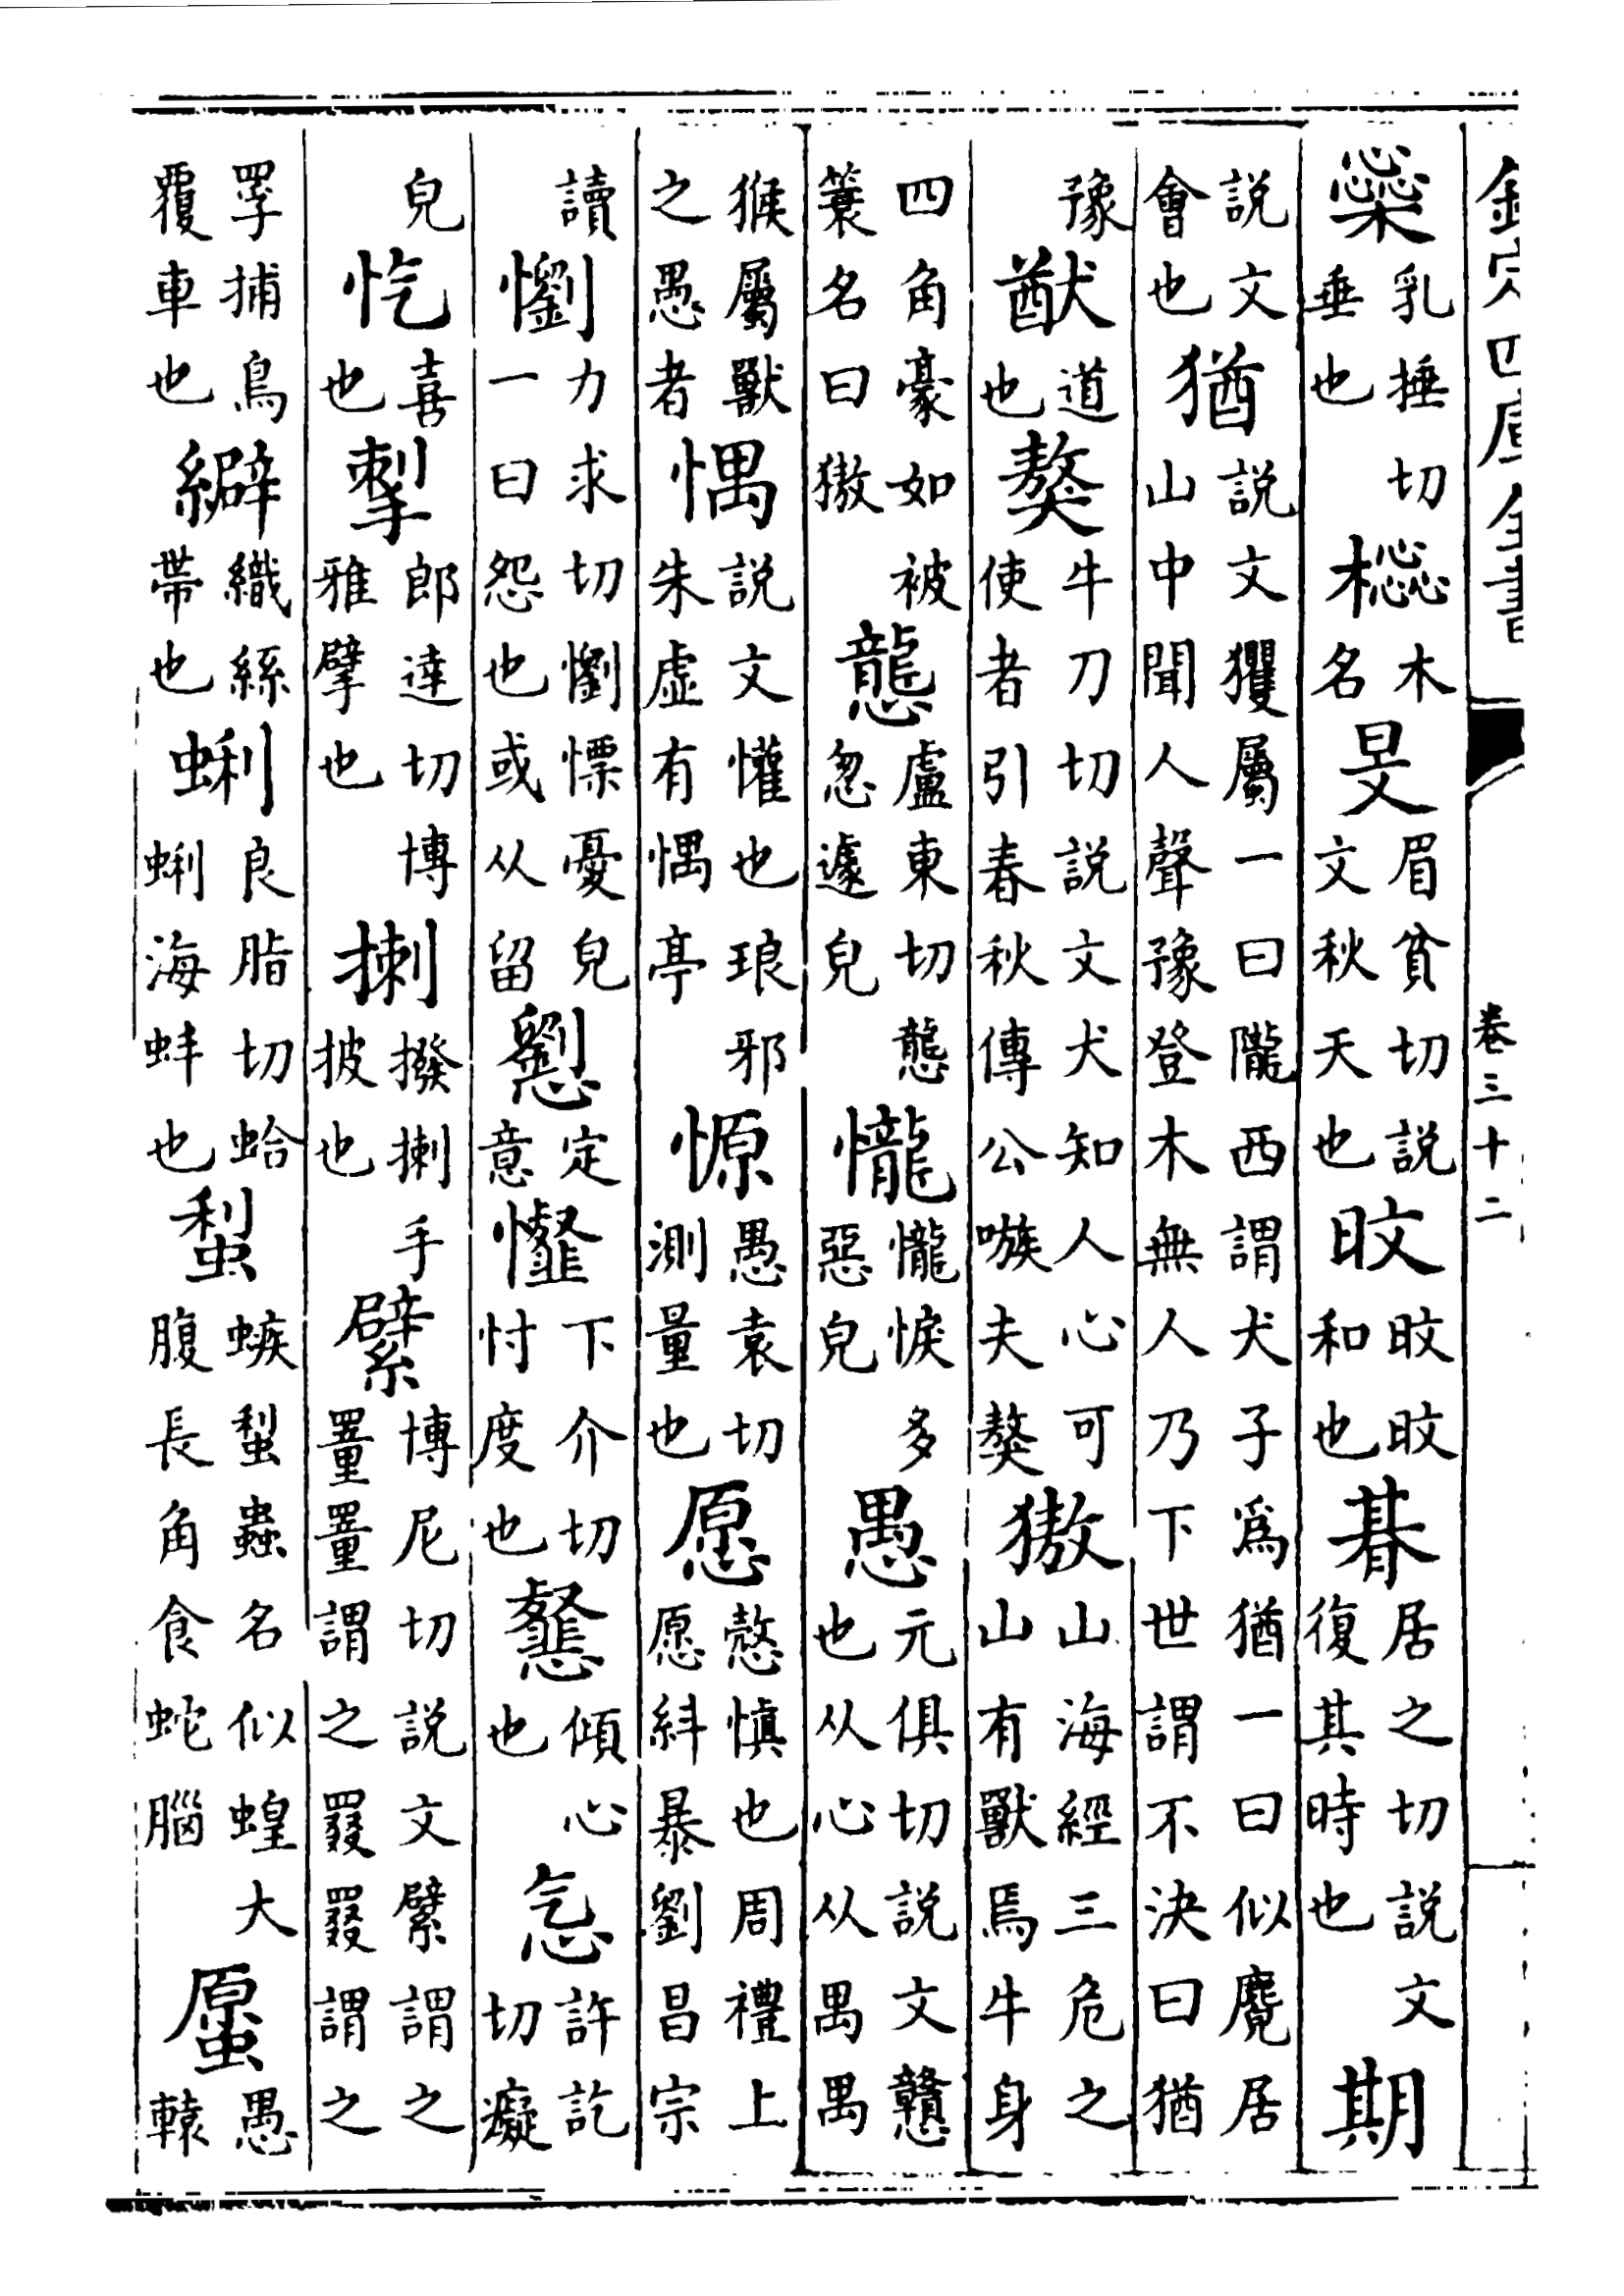 欽定四庫全書 卷三十二
橤乳捶切垂也 木名旻眉貧切說文秋天也旼旼旼和也朞居之切說文復其時也期
說文會也猶說文玃屬一曰隴西謂犬子爲猶一曰似麂居山中聞人聲豫登木無人乃下世謂不決曰猶
豫猷道也獒牛刀切說文犬知人心可使者引春秋傳公嗾夫獒獓山山海經三危之山有獸焉牛身
四角豪如被簑名曰獓𢥠盧東切𢥠忽遽皃㦕㦕悷多惡皃愚元俱切說文戇也从心从禺禺
猴屬獸之愚者㥥說文懽也琅邪朱虛有㥥亭㥳愚袁切測量也愿愨慎也周禮上愿糾暴劉昌宗
讀懰力求切懰慄憂皃一曰怨也或从留 定意 下介切忖度也 傾心也忥許訖切癡
皃忾喜也揧郎達切博雅擘也揦撥揦手披也繴博尼切說文繴謂之罿罿謂之罬罬謂之
罦捕鳥覆車也 織絲帶也蜊良脂切蛤蜊海蚌也 蟲名似蝗大腹長角食蛇腦 愚轅